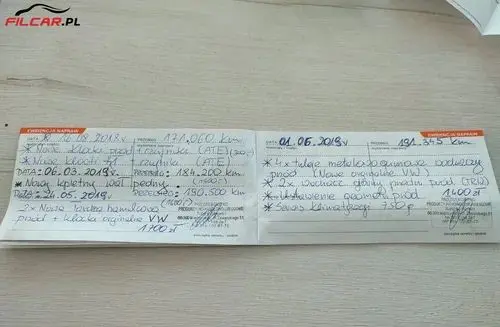 FILCAR.PL
EWIDENCJA NAPRAW
DATA: 16.08.2018r. PRZEBIEG: 171,060 km
* Nowe klocki przód + czujnik (ATE)
* Nowe klocki tył + czujnik (ATE)
DATA: 06.03.2019r. PRZEBIEG: 184.200 km
* Nowy kpletny
DATA: 24.05.2019r. 190,500 km
2x Nowe tarcze hamulcowe
przód + klocki oryginalne VW
1700 zł
EWIDENCJA NAPRAW
DATA: 01.06.2019r PRZEBIEG: 191.345 km
* 4x tuleje metalowo gumowe podwozia
przód (Nowe oryginalne VW)
* 2x wachacz główny przedni przód (TRW)
* Ustawienie geometrii przód 1400 zł
* Serwis klimatyzacji 250 zł